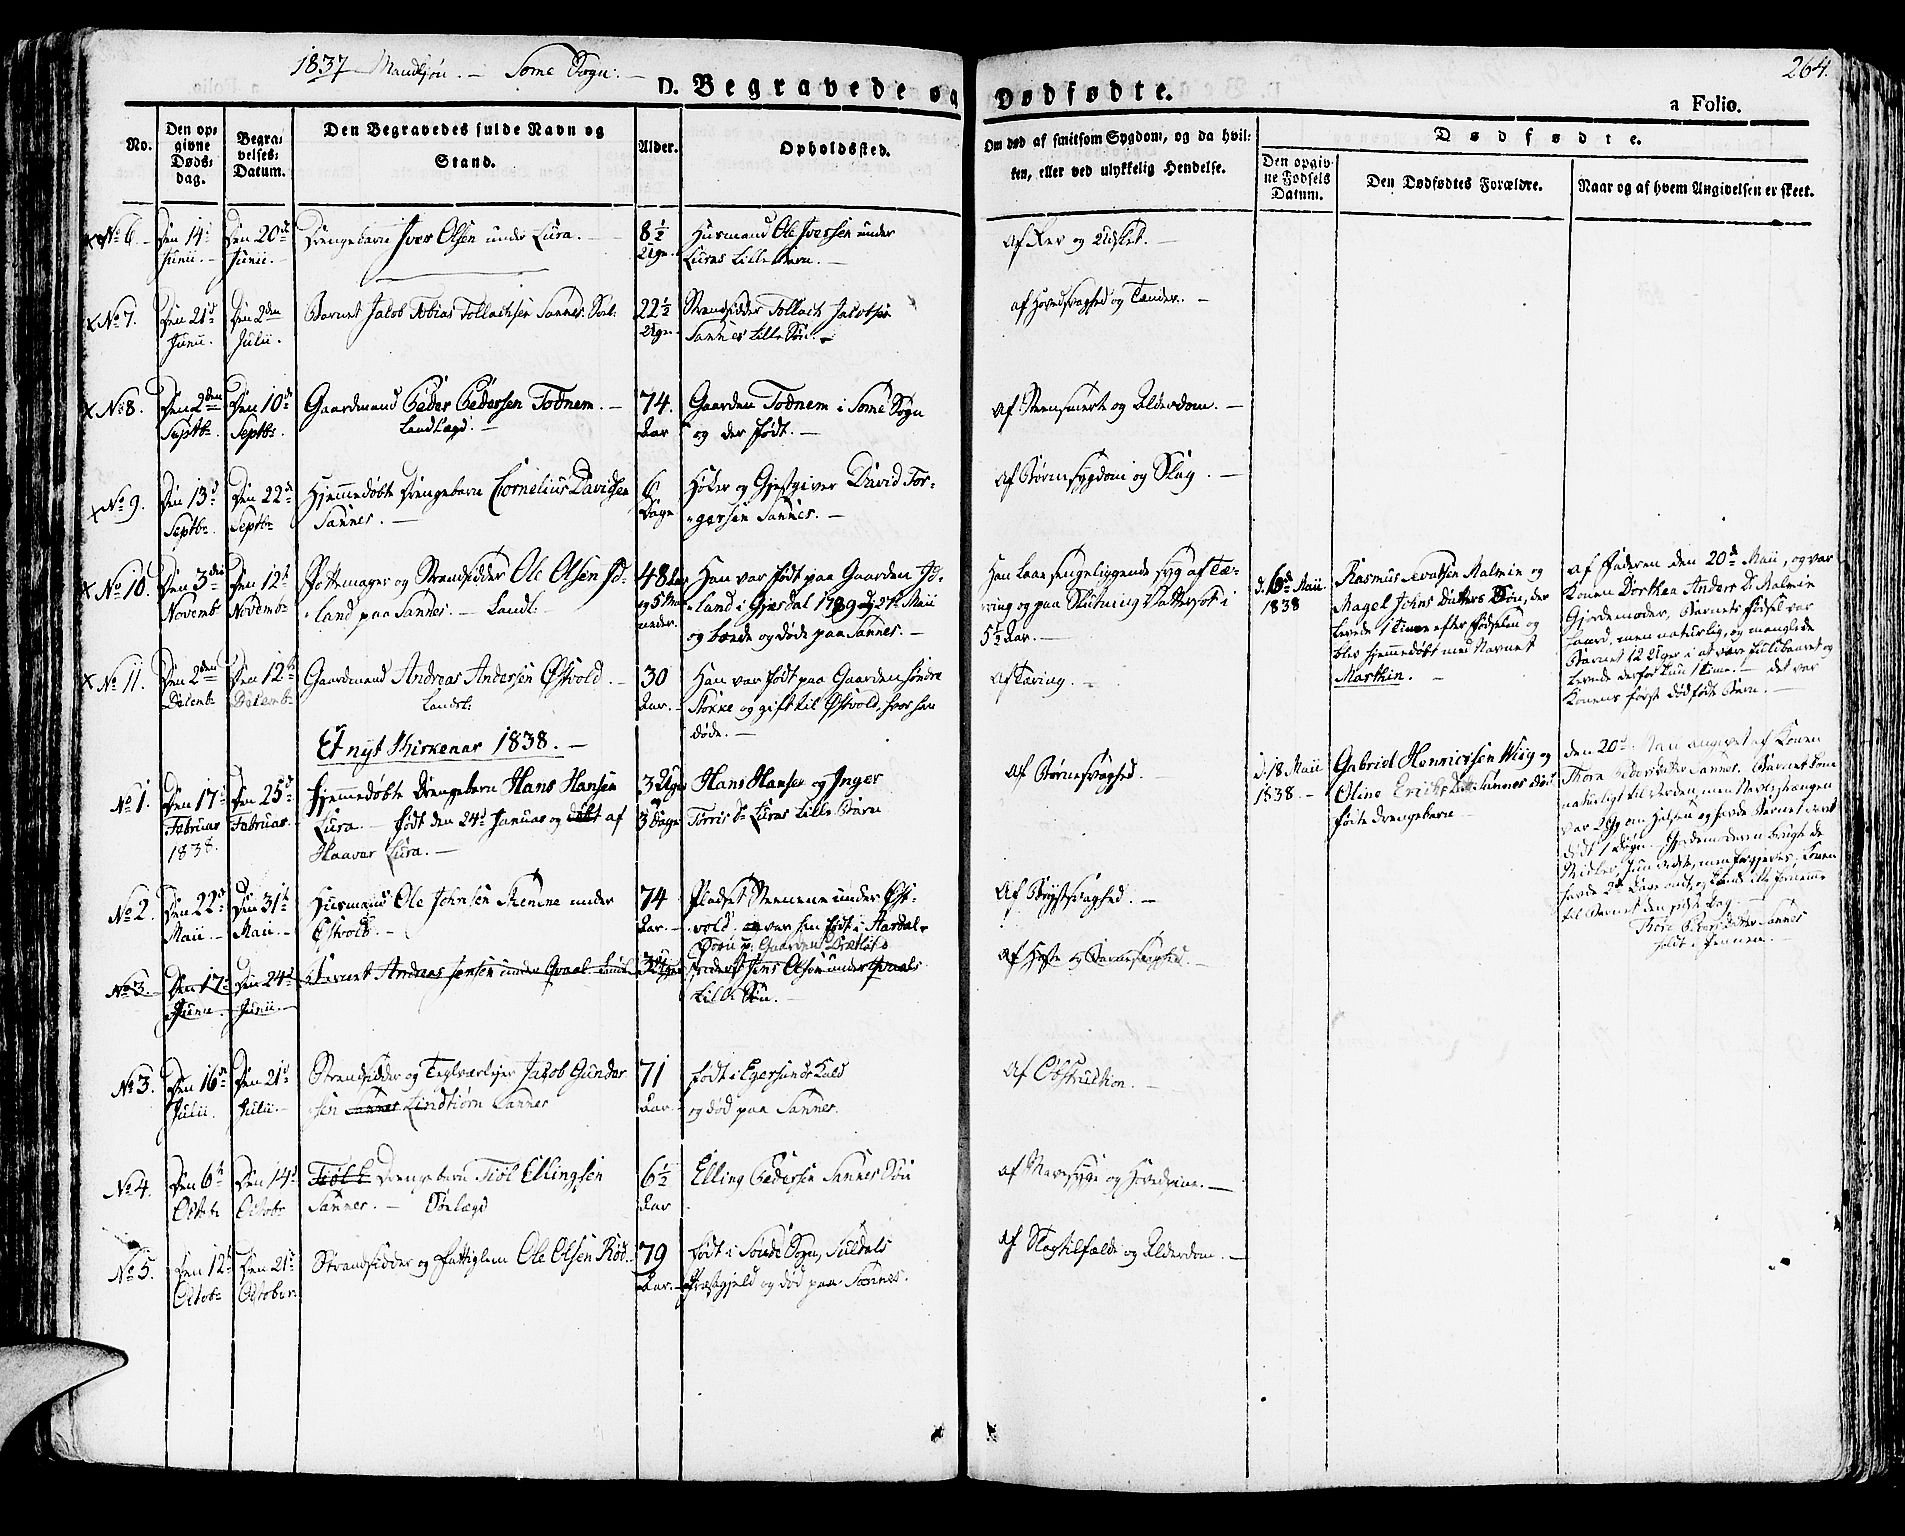 1837 Mandkjøn. — Some Sogn. —
264.
D. Begravede og Dødfødte.
a Folio.
No.
Den opgivne Dødsdag.
Begravelses-Datum.
Den Begravedes fulde Navn og Stand.
Alder.
Opholdssted.
Om død af smitsom Sygdom, og da hvilken, eller ved ulykkelig Hendelse.
Dødfødte.
Den opgivne Fødsels Datum.
Den Dødfødtes Forældre.
Naar og af hvem Angivelsen er skeet.
x No 6. Den 14de Junii. Den 20de Junii. Drengebarn Iver Olsen under Lura. 8½ Uge. Huusmand Ole Iversen under
Luras lille Barn. —
af Kr og Udslet. —
x No 7. Den 21de Junii. Den 2den Julii. Barnet Jacob Tobias Tollachsen Sannes. 22½ Uge. Strandsidder Tollach Jacobsen
Sannes lille Søn. —
af Hovedsvaghed og Tænder. —
x No 8. Den 2den Septbr. Den 10de Septbr. Gaardmand Peder Pedersen Todnem. — 74. Aar Gaarden Todnem i Some Sogn
Landlægd. —
og der født. —
af Steensmerte og Alderdom. —
x No 9. Den 13de Septbr. Den 22de Septbr. Hjemmedøbte Drengebarn Cornelius Davidsen
Sannes. —
6 Dage
Høker og Gjestgiver David Tor-
gersen Sannes. —
af Børnesygdom og Slag. —
x No 10. Den 3die Novemb. Den 12te Novembr. Pottemager og Strandsidder Ole Olsen Id-
land paa Sannes. — Landl.
48 Aar og 5 Maaneder.
Han var født paa Gaarden Id-
land i Gjesdal 1789 d 27de Maii
og boede og døde paa Sannes. —
Han laae sengeliggende syg af Tæ-
ring og paa Slutning Vattersot i
5½ Aar. —
d. 6de Maii
1838
Rasmus Malmin og
Magel Johns Datters Søn, der
levede 1 Time efter Fødselen og
blev hjemmedøbt med Navnet
Marthin. —
af Faderen den 20de Maii, og var
Konen Dorthea Anders D. Malmin
Gjordemoder, Barnets Fødsel var
haard, men naturlig, og manglede
Barnet 12 Uger i at være fuldbaaret og
levede derfor kun 1 Time. — det var
Konens første dødfødte Barn. —
x No 11. Den 2den Decemb. Den 12te Decemb. Gaardmand Andreas Andersen Østvold. —
Landl.
30 Aar. —
Han var født paa Gaarden søndre
Stokke og gift til Østvold, hvor han
døde. —
af Tæring. —
Et nyt Kirkeaar 1838. —
No 1. Den 17de Februar 1838. Den 25de Februar. Hjemmedøbte Drengebarn Hans Hansen
Lura. — født den 24de Januar og døbt af
Haavar Lura. —
3 Uger og 3 Dage
Hans Hansen og Inger
Torris D. Luras lille Barn
af Børnesvaghed. —
d 18 Maii
1838. —
Gabriel Henricksen Wiig og
Oline Eriks Datter Sannes død-
fødte Drengebarn
den 20de Maii angivet af Konen
Thora Sannes. Barnet kom
naturligt til Verden, men Navlestrengen
var 2 Gg om Halsen og havde Barnet været
dødt 1 Døgn. Gjordemoderen brugte de
Midler, hun vidste, men forgjeves; Konen
til Barnet den sidste Dag. —
Sannes
No 2. Den 22de Maii. — Den 31te Maii. — Huusmand Ole Johnsen Steene under
Østvold. —
74 Aar. —
Pladset Steenene under Øst-
vold. — var han født i Aardal
Sogn p. Gaarden
Af Brystsvaghed. —
No 3. Den 17de Junii. Den 24de Junii. Barnet Andreas Jensen under Qvaal. 3 Uger
Inderst Jens Olsen under Qvaals
lille Søn. —
af Hoste og Børnesvaghed. —
No 3. Den 16de Julii. Den 21de Julii. — Strandsidder og Teglværkejer Jacob Gunder
sen Sannes Lindtiørn Sannes
71 Aar
født i Egersunds
og død paa Sannes.
af Obstruction. —
No 4. Den 6te Octobr Den 14de Octobr Tiøl E Drengebarn Tiøl Ellingsen
Sannes. — Søelægd
6½ Aar
Elling Pedersen Sannes Søn
af Mavesyge og Hovedpine. —
No 5. Den 12te Octobr Den 21de October. Strandsidder og Fattiglem Ole Olsen Rød. 79 Aar.
født i Sands Sogn, Suldals
Præstegjeld og død paa Sannes.
af Slagtilfælde og Alderdom. —